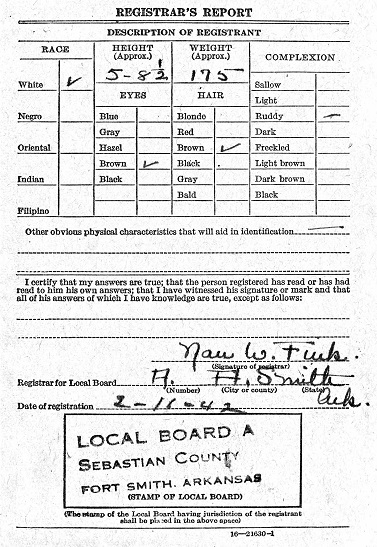 REGISTRAR'S REPORT
DESCRIPTION OF REGISTRANT
RACE HEIGHT (Approx.) WEIGHT (Approx.) COMPLEXION
5-8½ 175
White ✓ EYES HAIR Sallow
Light
Negro Blue Blonde Ruddy —
Gray Red Dark
Oriental Hazel Brown ✓ Freckled
Brown ✓ Black Light brown
Indian Black Gray Dark brown
Bald Black
Filipino
Other obvious physical characteristics that will aid in identification —
I certify that my answers are true; that the person registered has read or has had
read to him his own answers; that I have witnessed his signature or mark and that
all of his answers of which I have knowledge are true, except as follows:
W.
(Signature of registrar)
Registrar for Local Board A. Ft. Smith Ark.
(Number) (City or county) (State)
Date of registration 2-16-42
LOCAL BOARD A
SEBASTIAN COUNTY
FORT SMITH, ARKANSAS
(STAMP OF LOCAL BOARD)
(The stamp of the Local Board having jurisdiction of the registrant
shall be placed in the above space)
16—21630-1